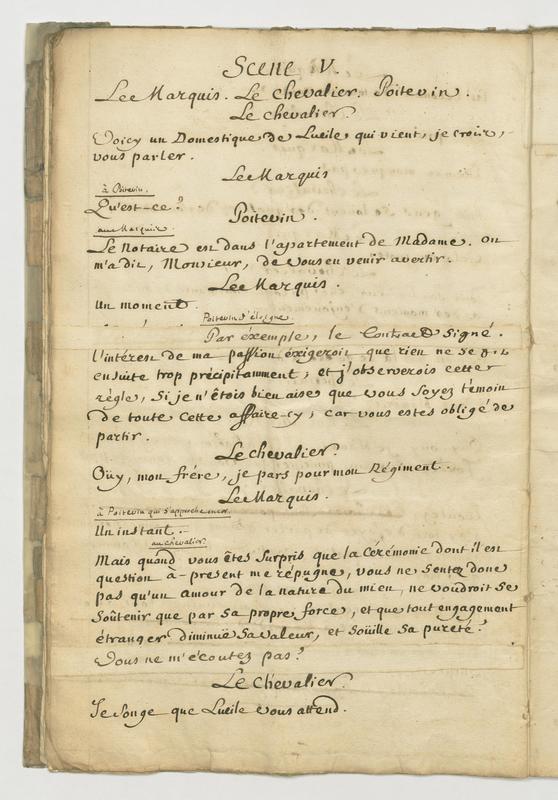 Scene V.
Le Marquis. Le Chevalier. Poitevin.
Le Chevalier.
Voicy un Domestique de Lucile qui vient, je crois,
vous parler.
Le Marquis
à Poitevin.
Qu'est-ce?
Poitevin.
au Marquis.
Le Notaire est dans l'apartement de Madame. On
m'a dit, Monsieur, de vous en venir avertir.
Le Marquis.
Un moment.
Poitevin s'éloigne.
Par éxemple, le Contract signé.
l'intérest de ma passion éxigeroit que rien ne se fit
ensuite trop précipitamment; et j'observerois cette
régle, si je n'étois bien aise que vous soyez témoin
de toute cette affaire-cy; car vous estes obligé de
partir.
Le Chevalier.
Oüy, mon frére, je pars pour mon Régiment.
Le Marquis.
à Poitevin qui s'approche encor.
Un instant.
au Chevalier.
Mais quand vous êtes surpris que la Cérémonie dont il est
question à-present me répugne, vous ne sentez donc
pas qu'un amour de la nature du mien, ne voudroit se
soûtenir que par sa propre force, et que tout engagement
étranger diminuë sa valeur, et soüille sa pureté?
Vous ne m'écoutez pas?
Le Chevalier.
Je songe que Lucile vous attend.